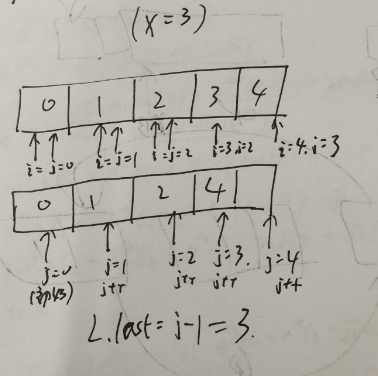 (x=3)
0 1 2 3 4
i= j=0 i=j=1 i=j=2 i=3 j=2 i=4. j=3
0 1 2 4
j=0 j=1 j=2 j=3. j=4
j++ j++ j++ j++
L.last=j-1=3.